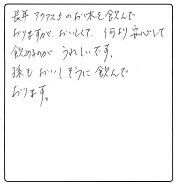 長年 アクアス5のお水を飲んで
おりますが、おいしくて、何より安心して
飲めるのが うれしいです。
孫も おいしそうに 飲んで
おります。